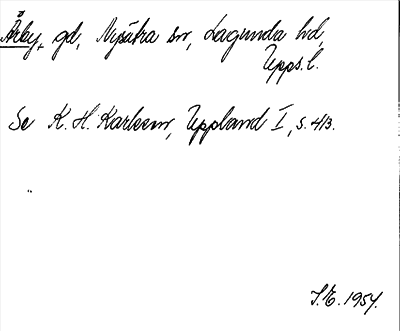 Årby, gd, Nysätra sn, Lagunda hd,
Upps.l.
Se K. H. Karlsson, Uppland I, s. 413.
1954.